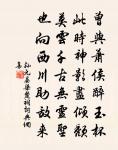 曾與蕭侯醉玉杯
此時神影盡傾頹
莫雲千古無靈聖
也向西川助敵來
孫元晏梁楚祠